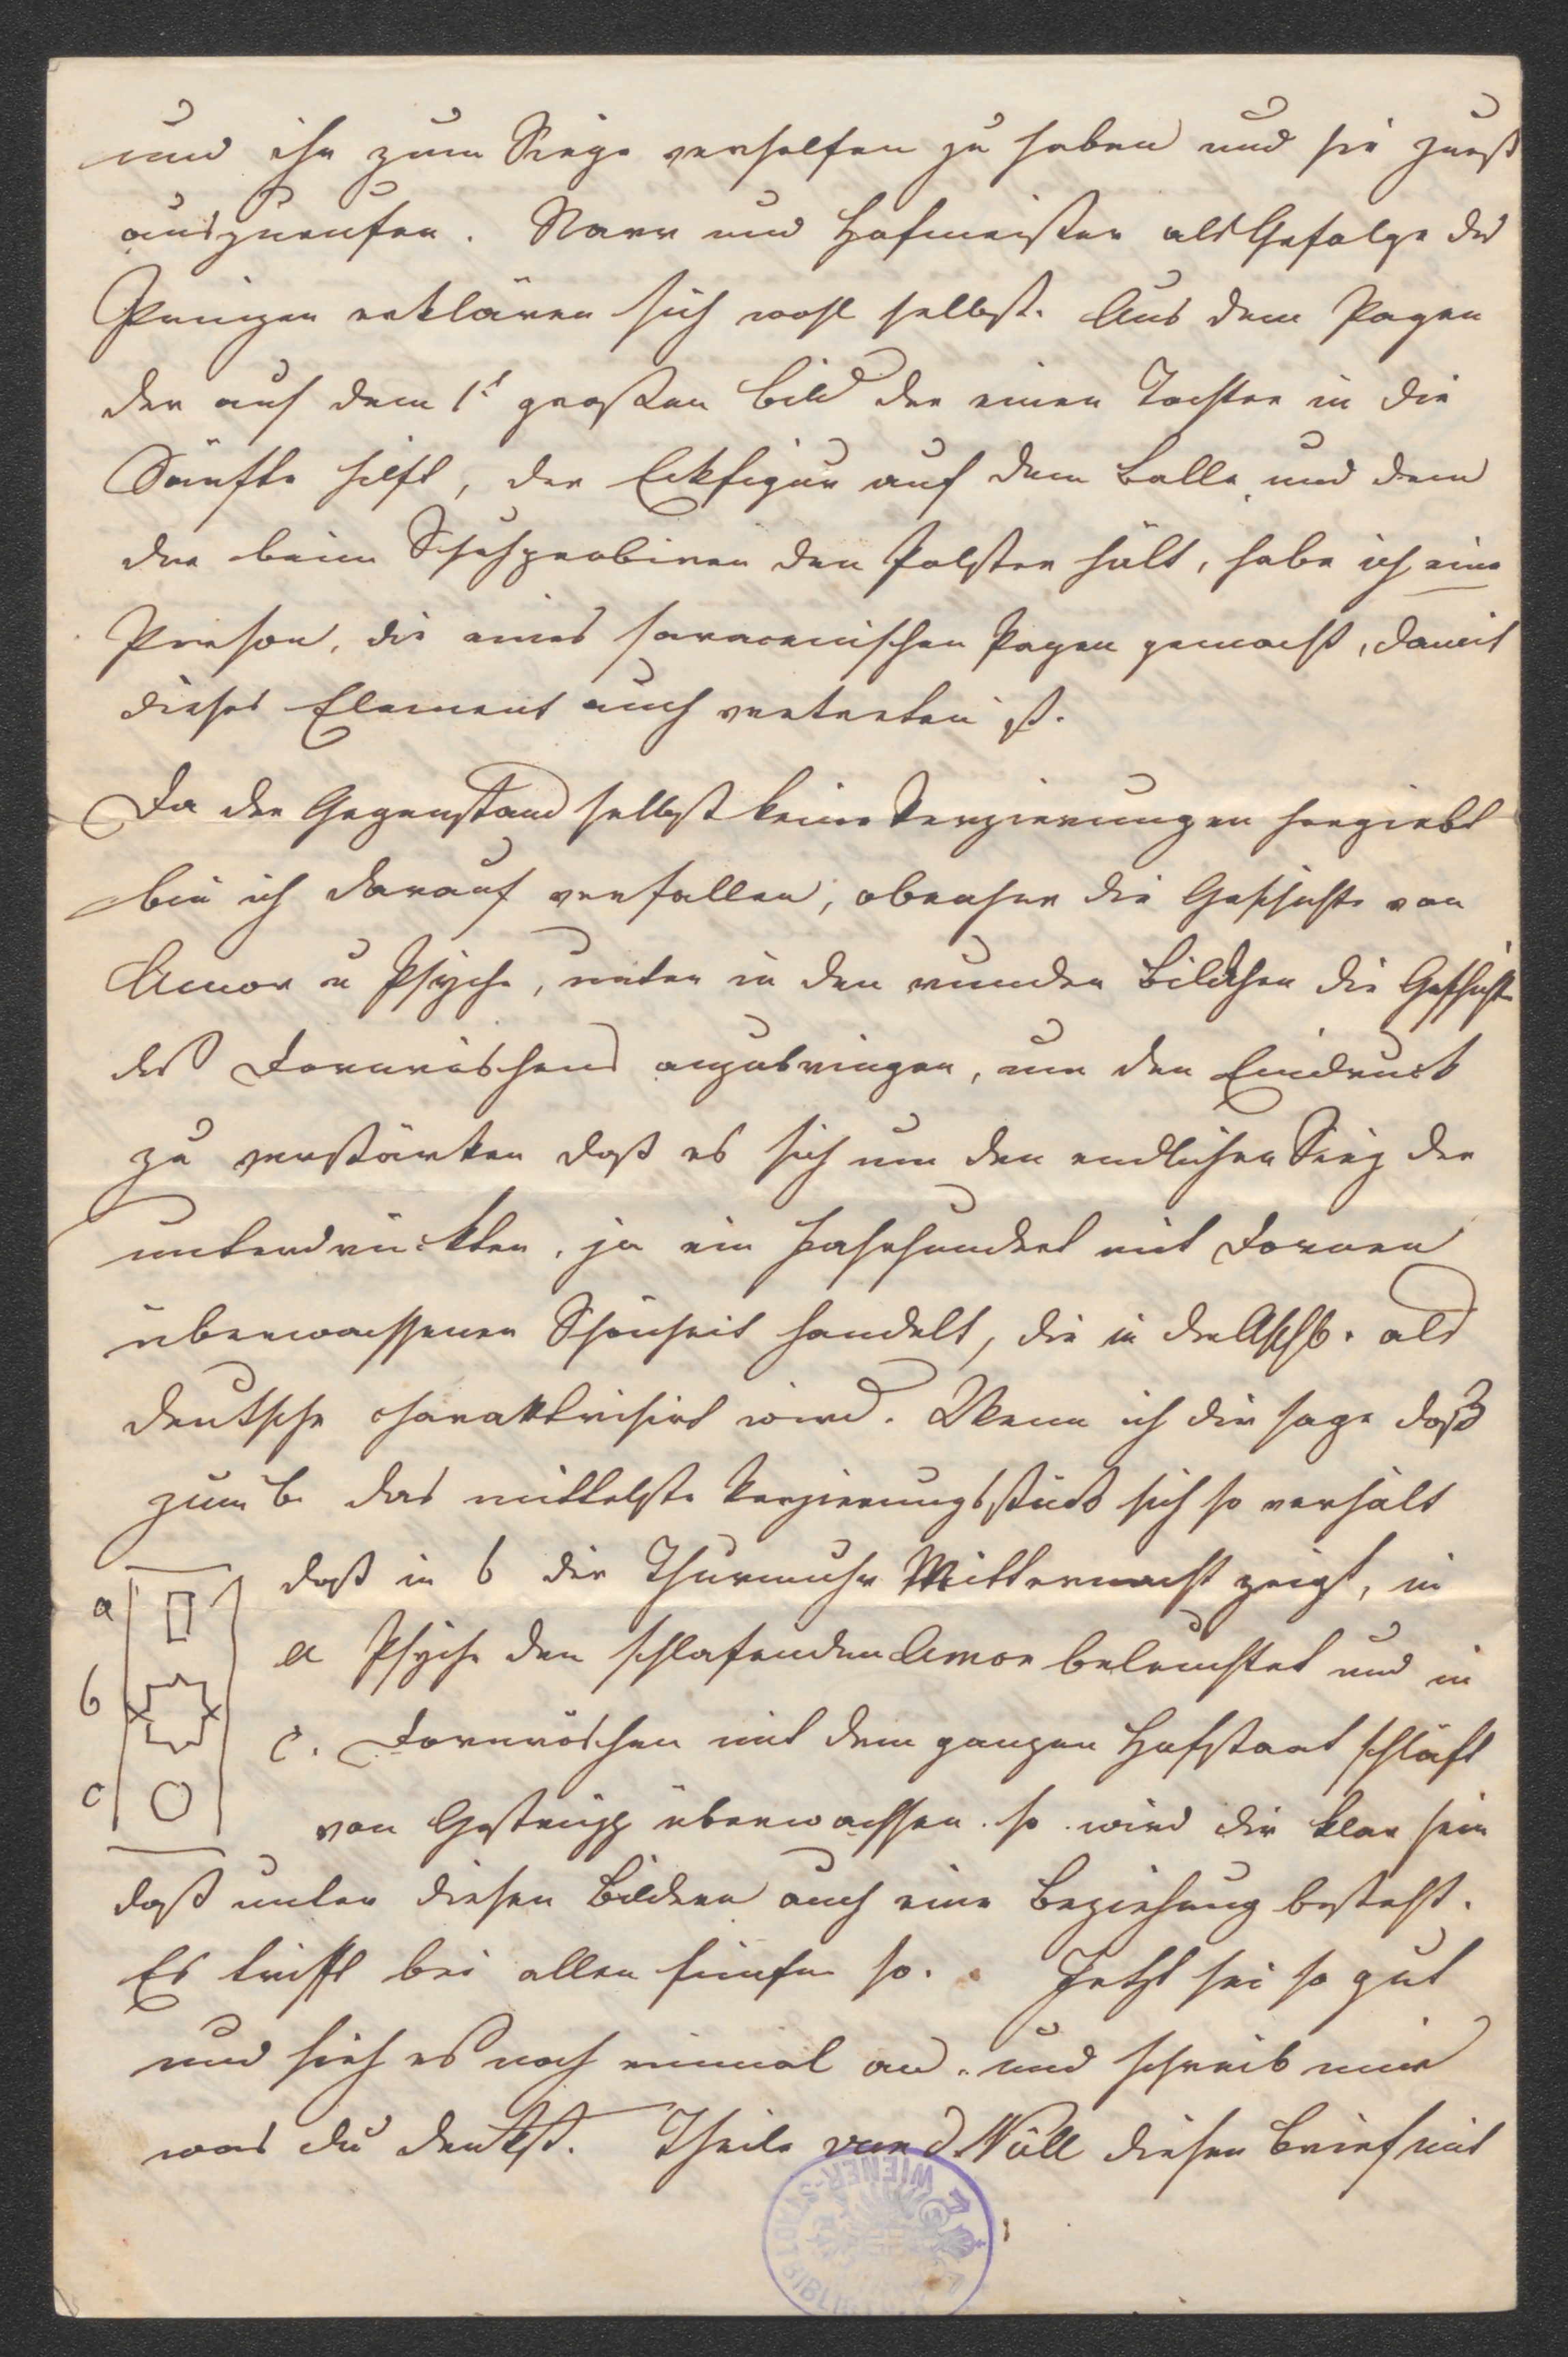 und ihr zum Siege verholfen zu haben und sie zuerst
auszurufen. Narr und Hofmeister als Gefolge des
Prinzen erklären sich wohl selbst. Aus dem Pagen
der auf dem 1t großen Bild der einen Tochter in die
Sänfte hilft, der Eckfigur auf dem Balle und dem
der beim Schuhprobiren den Polster hält, habe ich eine
Person, die eines saracenischen Pagen gemacht, damit
dieses Element auch vertreten ist.
Da der Gegenstand selbst keine Verzierungen hergiebt
bin ich darauf verfallen, obenher die Geschichte von
Amor u Psyche, unten in den runden Bildchen die Geschichte
des Dornröschens anzubringen, um den Eindruck
zu verstärken daß es sich um den endlichen Sieg der
unterdrückten, ja ein Jahrhundert mit Dornen
überwachsenen Schönheit handelt, die in der Aschb. als
deutsche charakterisirt wird. Wenn ich dir sage daß
zum B. das mittelste Verzierungsstück sich so verhält
daß in b die Thurmuhr Mitternacht zeigt, in
a Psyche den schlafenden Amor beleuchtet und in
c. Dornröschen mit dem ganzen Hofstaat schläft
von Gestrüpp überwachsen. so wird dir klar sein
a
b
c
daß unter diesen Bildern auch eine Beziehung besteht.
Es trifft bei allen fünfen so. Jetzt sei so gut
und sieh es noch einmal an. und schreib mir
was du denkst. Theile van d. Nüll diesen Brief mit
WIENER STADTBIBLIOTHEK